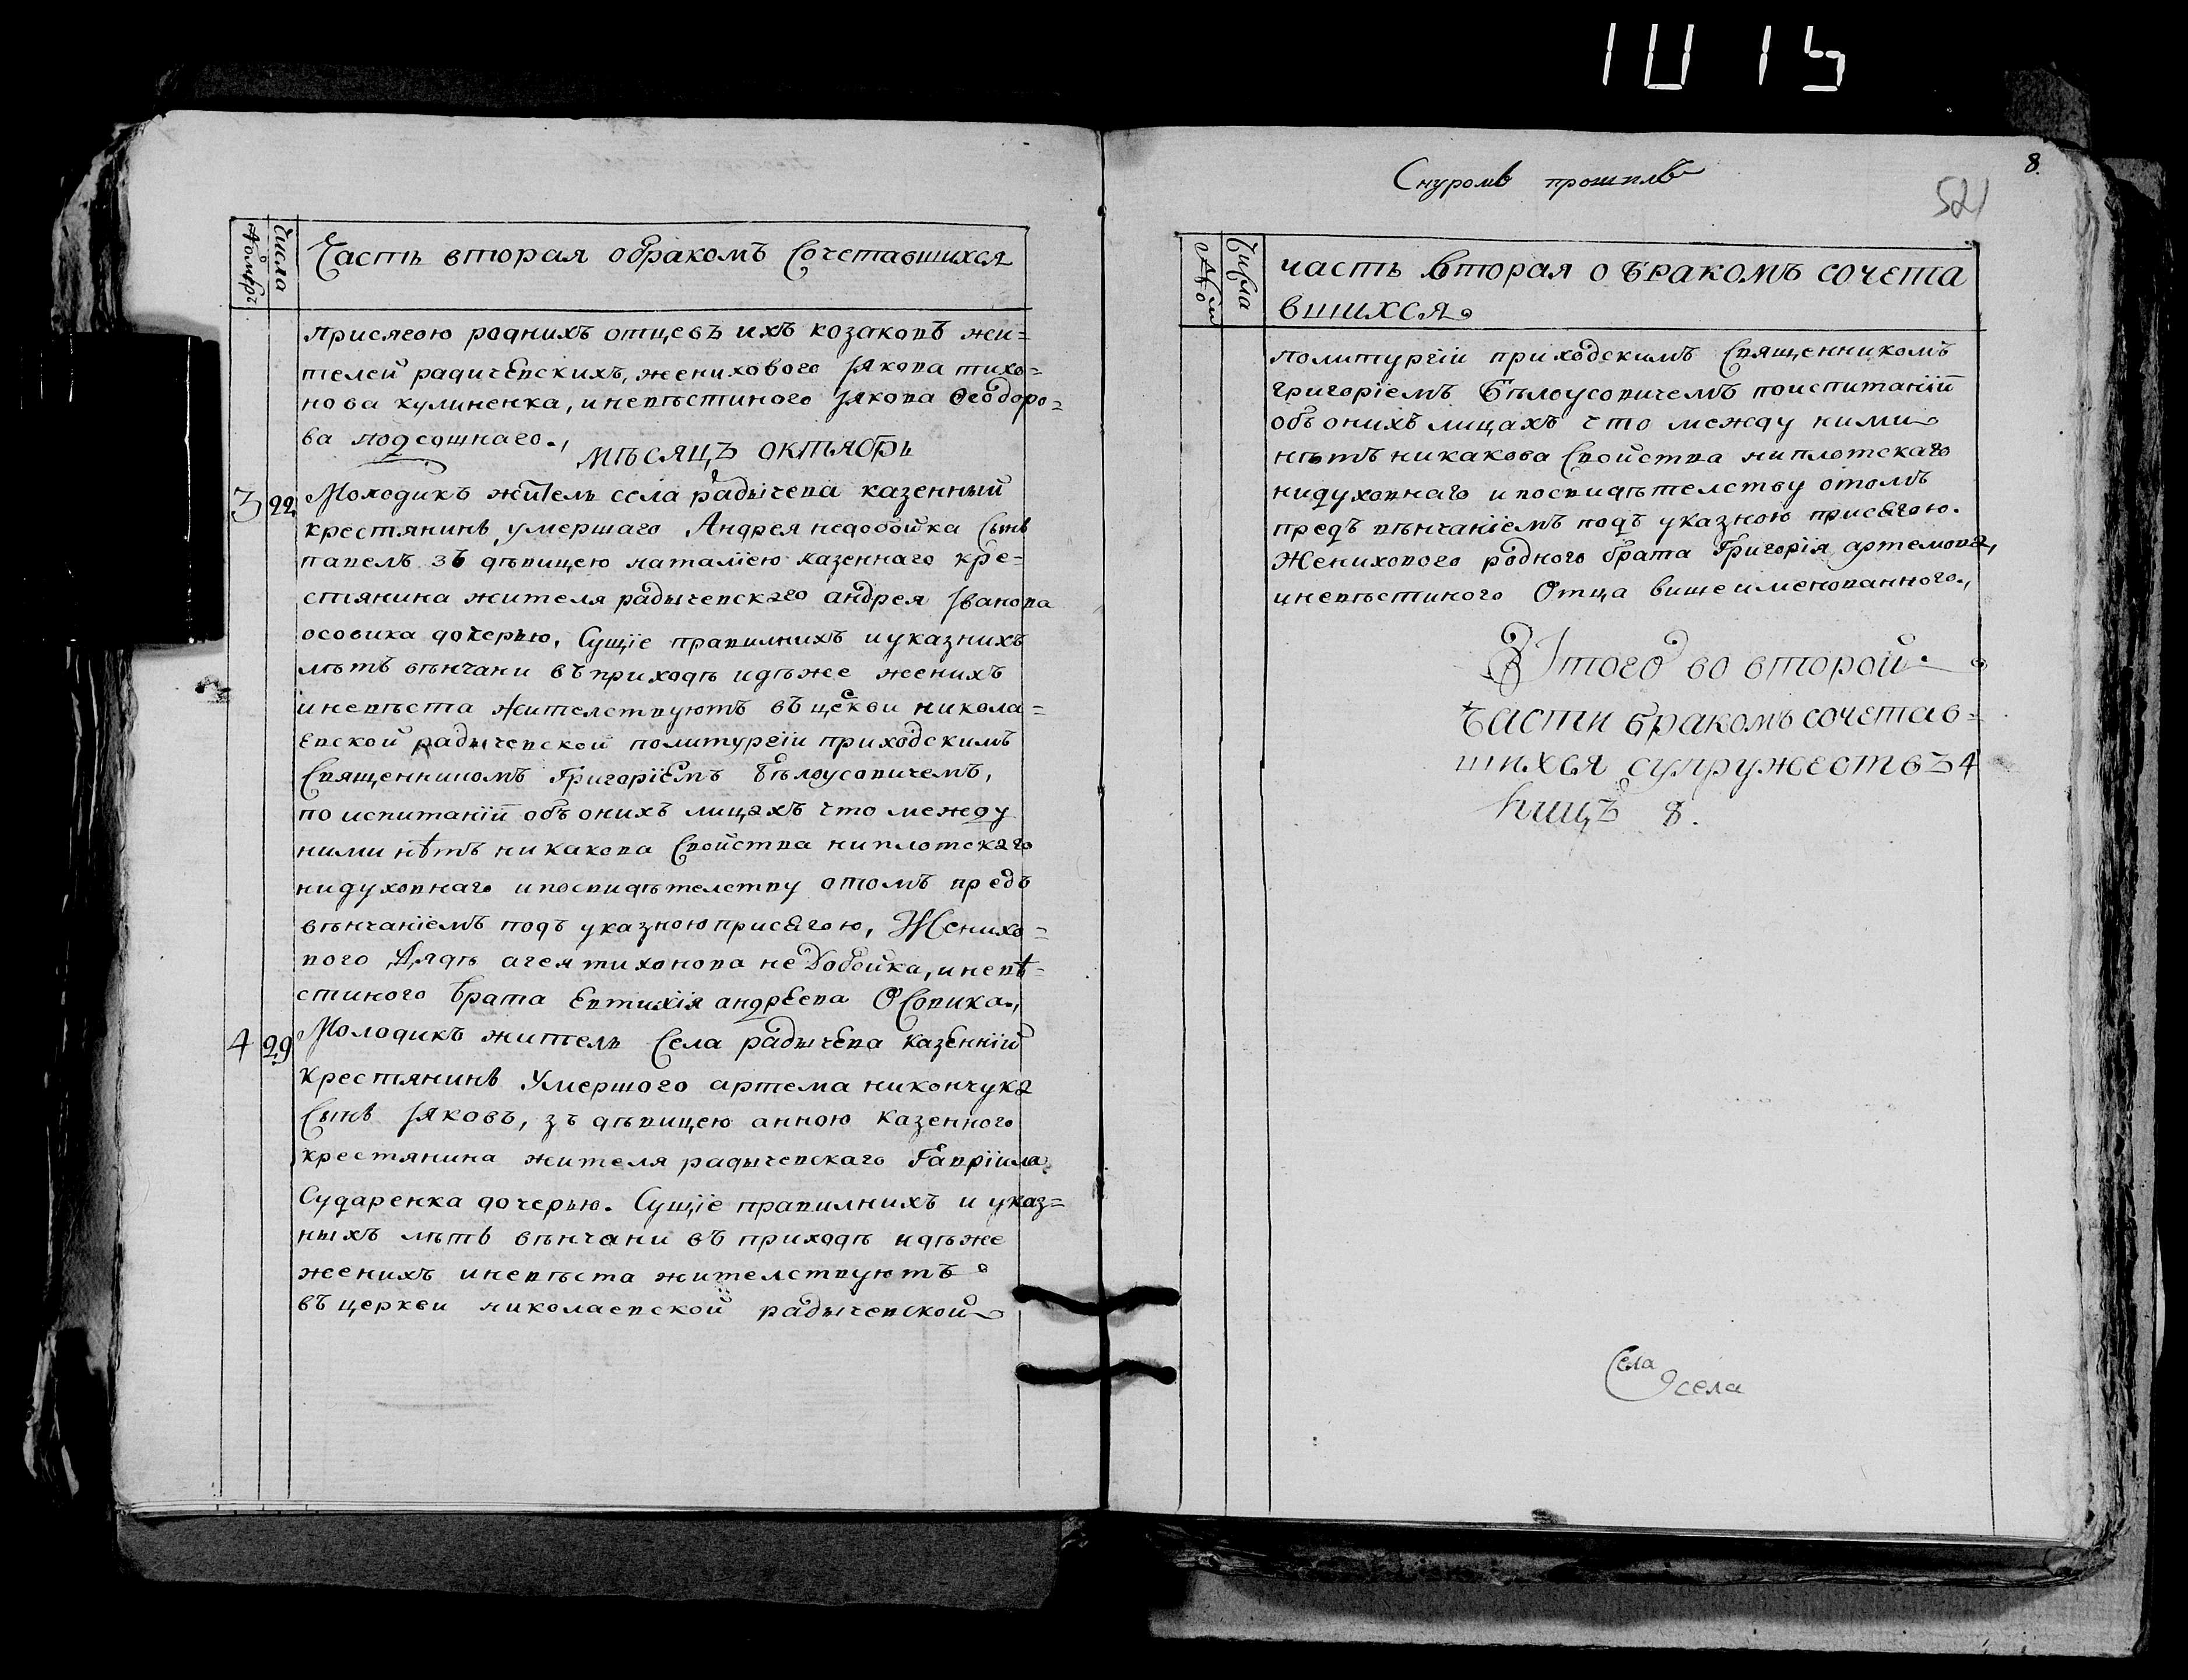 1015
Часть вторая обракомъ Сочетавшихся
Числа
присягою родныхъ отцевъ ихъ козаковъ жи=
телей радичевскихъ, женихового Якова тихо=
нова кулиненка, иневѣстиного Якова Ѳеодоро=
ва подсошнаго.,
мѣсяцъ октябрь
3 22 Молодикъ житель села радычева казенный
крестянинъ, умершаго Андрея недобойка Сынъ
павелъ зъ дѣвицею наталіею казеннаго кре=
стянина жителя радычевскаго андрея Іванова
осовика дочерью, Сущіе правилнихъ иуказнихъ
лѣтъ вѣнчани въ приходѣ идѣже женихъ
иневѣста жителствуютъ въ цекви никола=
евской радычевской политургіи приходскимъ
Священникомъ Григоріемъ Бѣлоусовичемъ,
по испитаніи объ онихъ лицахъ что между
ними нѣтъ никакова Свойства ниплотскаго
нидуховнаго ипосвидѣтелству отомъ предъ
вѣнчаніемъ подъ указною присягою, Женихо=
вого Дядѣ агея тихонова недобойка, иневѣ=
стиного брата Евтихія андреева Осовика.,
4 29 Молодикъ житель Села радычева казенній
крестянинъ Умершого артема никончука
Сынъ Яковъ, зъ дѣвицею анною казенного
крестянина жителя радычевскаго Гавріила
Сударенка дочерью. Сущіе правилнихъ и указ=
ныхъ лѣтъ вѣнчани въ приходѣ идѣже
женихъ иневѣста жителствуютъ
въ церкви николаевской радычевской
8.
Снуромъ прошитъ
521
Числа
часть вторая о бракомъ сочета
вшихся
политургіи приходскимъ Священникомъ
григоріемъ Бѣлоусовичемъ поиспитаніи
объ онихъ лицахъ что между ними
нѣтъ никакова Свойства ниплотскаго
нидуховнаго ипосвидѣтелству отомъ
предъ вѣнчаніемъ подъ указною присягою.
Женихового родного брата Григорія артемова,
иневѣстиного Отца вишеименованного.,
Итого во второй
части бракомъ сочетав=
шихся супружествъ 4
лицъ 8.
Села
села